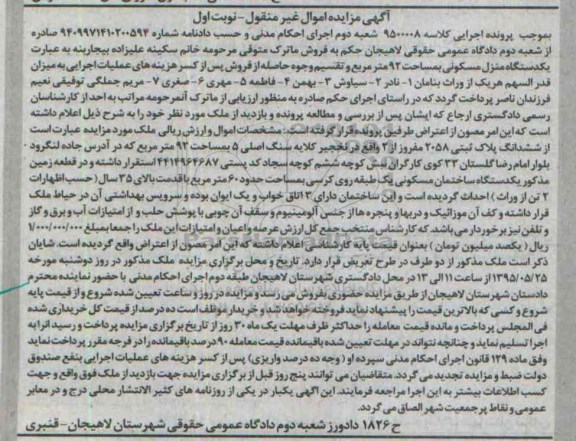 آگهی مزایده اموال غیر منقول - نوبت اول
بموجب پرونده اجرایی کلاسه ۹۵۰۰۰۰۸ شعبه دوم اجرای احکام مدنی و حسب دادنامه شماره ۹۴۰۹۹۷۱۴۱۰۲۰۰۵۹۴ صادره
از شعبه دوم دادگاه عمومی حقوقی لاهیجان حکم به فروش ماترک متوفی مرحومه خانم سکینه علیزاده بیجاربنه به عبارت
یکدستگاه منزل مسکونی بمساحت ۹۲ متر مربع و تقسیم وجوه حاصله از فروش پس از کسر هزینه های عملیات اجرایی به میزان
قدر السهم هریک از وراث بنامان ۱- نادر ۲- سیاوش ۳- بهمن ۴- فاطمه ۵- مهری ۶- صغری ۷- مریم جملگی توفیقی نعیم
فرزندان ناصر پرداخت گردد که در راستای اجرای حکم صادره به منظور ارزیابی از ماترک آنمرحومه مراتب به احد از کارشناسان
رسمی دادگستری ارجاع که ایشان پس از بررسی و مطالعه پرونده و بازدید از ملک مورد نظر خود را به شرح ذیل اعلام داشته
است که این امر مصون از اعتراض طرفین پرونده قرار گرفته است: مشخصات اموال و ارزش ریالی ملک مورد مزایده عبارت است
از ششدانگ پلاک ثبتی ۲۰۵۸ مفروز از ۲ واقع در تجحیر کلایه سنگ اصلی ۵ بمساحت ۹۲ متر مربع که در آدرس جاده لنگرود -
بلوار امام رضا گلستان ۳۳ کوی کارگران نبش کوچه ششم کوچه سجاد کد پستی ۴۴۱۴۹۶۴۶۸۷ استقرار داشته و در قطعه زمین
مذکور یکدستگاه ساختمان مسکونی یک طبقه روی کرسی بمساحت حدود ۶۰ متر مربع با قدمت بالای ۳۵ سال (حسب اظهارات
۲ تن از وراث) احداث گردیده است و این ساختمان دارای ۳ اتاق خواب و یک ایوان بوده و سرویس بهداشتی آن در حیاط ملک
قرار داشته و کف آن موزائیک و دربها و پنجره ها از جنس آلومینیوم و سقف آن چوبی با پوشش حلب و از امتیازات آب و برق و گاز
و تلفن نیز برخوردار می باشد، که کارشناس منتخب جمع کل ارزش عرصه و اعیان و امتیازات این ملک را جمعا بمبلغ ۱/۰۰۰/۰۰۰/۰۰۰
ریال (یکصد میلیون تومان) بعنوان قیمت پایه کارشناسی اعلام داشته که این امر مصون از اعتراض واقع گردیده است. شایان
ذکر است ملک مذکور از دو طرف در طرح تعریض قرار دارد. تاریخ و محل برگزاری مزایده ملک مذکور در روز دوشنبه مورخه
۱۳۹۵/۰۵/۲۵ از ساعت ۱۱ الی ۱۳ در محل دادگستری شهرستان لاهیجان طبقه دوم اجرای احکام مدنی با حضور نماینده محترم
دادستان شهرستان لاهیجان از طریق مزایده حضوری بفروش می رسد و مزایده در روز و ساعت تعیین شده شروع و از قیمت پایه
شروع و کسی که بالاترین قیمت را پیشنهاد نماید فروخته خواهد شد و خریدار موظف است ده درصد از قیمت کل خریداری شده
فی المجلس پرداخت و مانده قیمت معامله را حداکثر ظرف مهلت یک ماه ۳۰ روز از تاریخ برگزاری مزایده پرداخت و رسید آنرا به
اجرا تسلیم نماید و چنانچه نتواند در مهلت تعیین شده باقیمانده قیمت معامله ۹۰ درصد باقیمانده را در فرجه مقرر پرداخت نماید
وفق ماده ۱۲۹ قانون اجرای احکام مدنی سپرده او (وجه ده درصد واریزی) پس از کسر هزینه های عملیات اجرایی بنفع صندوق
دولت ضبط و مزایده تجدید می گردد. متقاضیان می توانند پنج روز قبل از برگزاری مزایده جهت بازدید از ملک فوق واقع و جهت
کسب اطلاعات بیشتر به این اجرا مراجعه فرمایند. این آگهی یکبار در یکی از روزنامه های کثیر الانتشار محلی درج و در معابر
عمومی و نقاط پرجمعیت شهر الصاق می گردد.
ح ۱۸۲۶ دادورز شعبه دوم دادگاه عمومی حقوقی شهرستان لاهیجان - قنبری